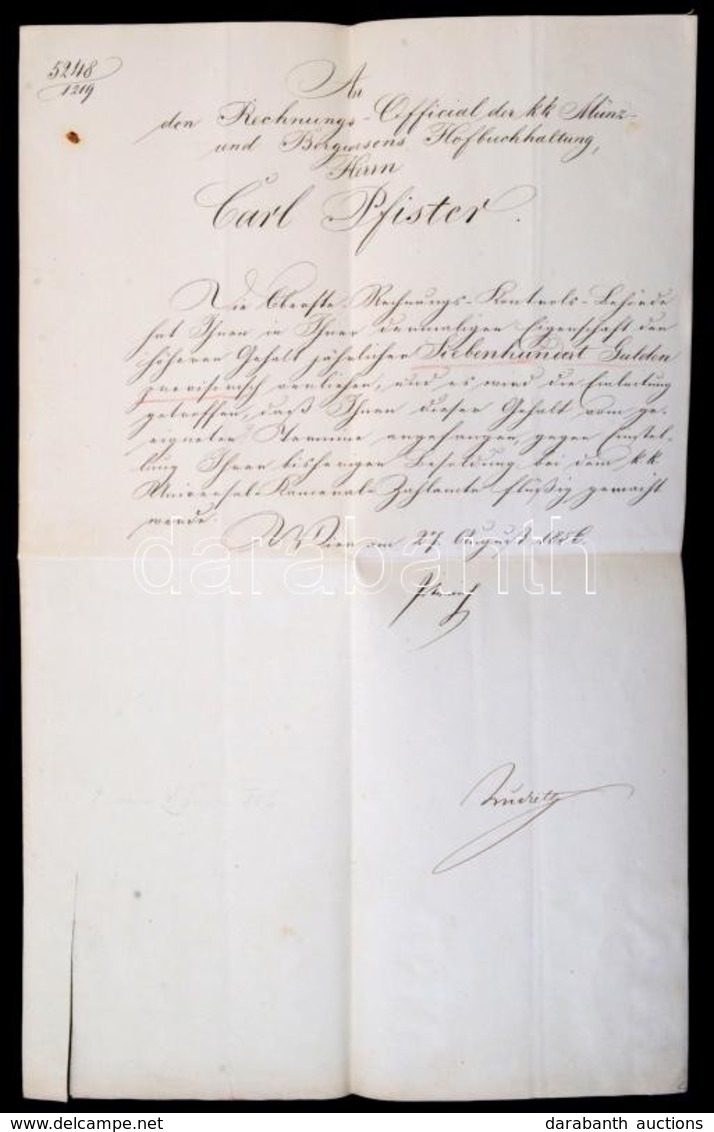 5248
1219
An
den Rechnungs-Official der kk Münz-
und Bergwesens Hofbuchhaltung,
Herrn
Carl Pfister.
Die Oberste Rechnungs-Kontrols-Behörde
hat Ihnen in Ihrer dermaligen Eigenschaft den
höheren Gehalt jährlicher Siebenhundert Gulden
provisorisch verliehen, und es wird die Einleitung
getroffen, daß Ihnen dieser Gehalt vom ge-
eigneten Termine angefangen, gegen Einstel-
lung Ihrer bisherigen Besoldung bei dem k.k.
Universal-Kameral-Zahlamte flüßig gemacht
werde.
Wien am 27. August 185
darabanth
delcampe.net
darabanth auctions